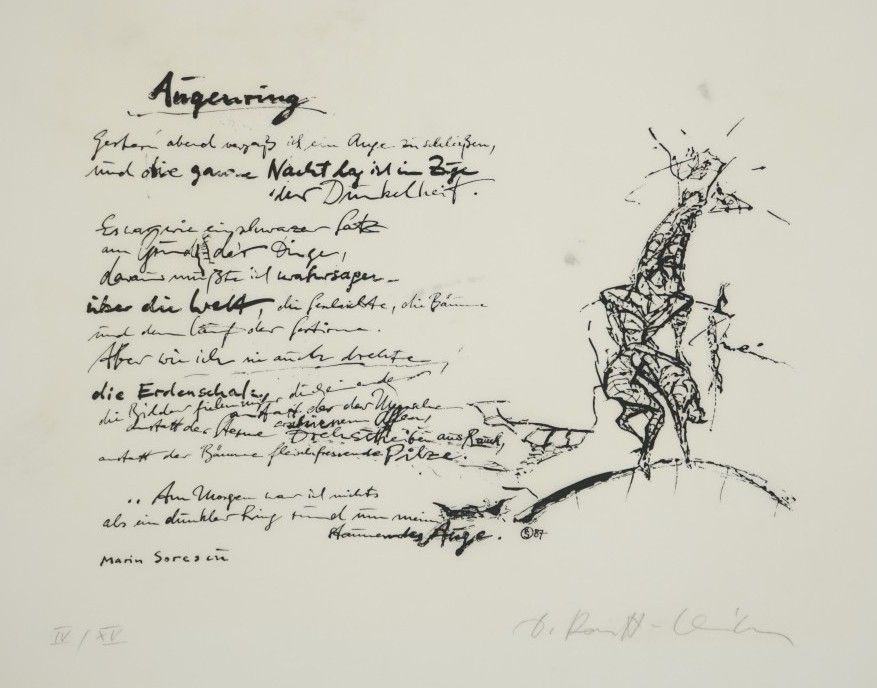 Augenring
Gestern abend vergaß ich ein Auge zu schließen,
und die ganze Nacht lag ich im Zuge
der Dunkelheit.
Es war wie ein schwarzer Satz
am Grund der Dinge,
daraus mußte ich wahrsagen
über die Welt, die Geschichte, die Bäume
und den Lauf der Gestirne.
Aber wie ich sie auch drehte,
die Erdenschale,
die Bilder fielen durcheinander
anstatt der Menschen erschienen Affen,
anstatt der Sterne Drehscheiben aus Rauch,
anstatt der Bäume fleischfressende Pilze.
.. Am Morgen war ich nichts
als ein dunkler Ring rund um mein
staunendes Auge.
Marin Sorescu
87
nein
IV / XV